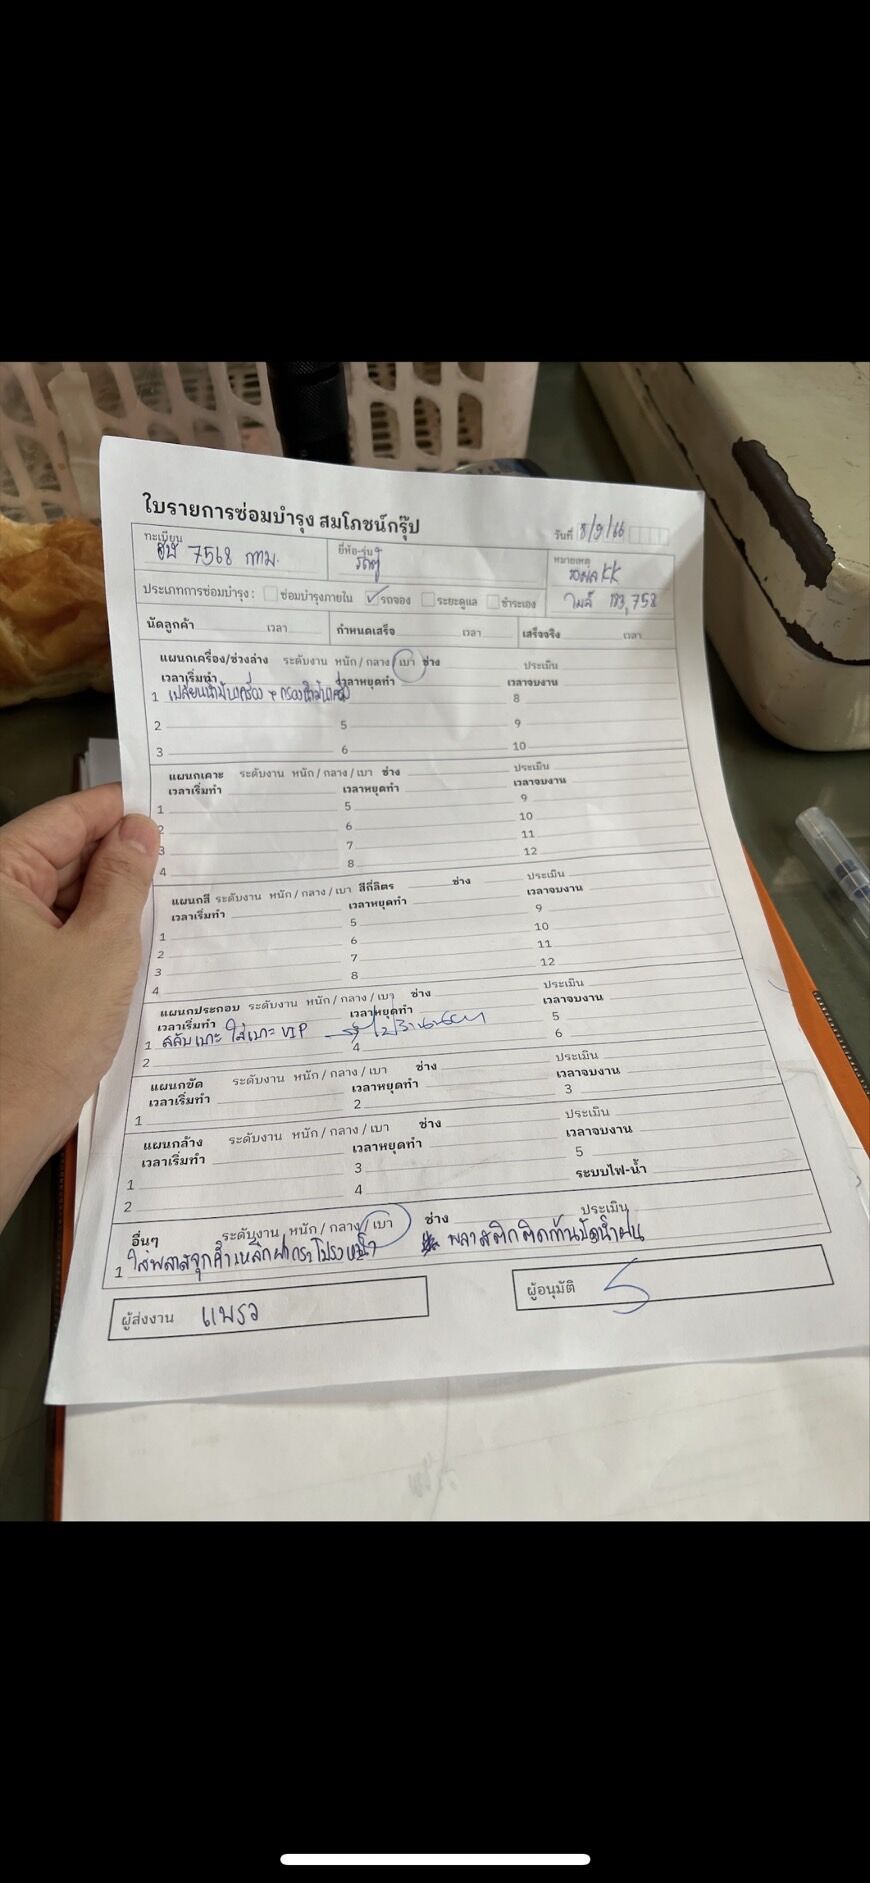 ใบรายการซ่อมบำรุง สมโภชน์กรุ๊ป
วันที่ 8/9/66
ทะเบียน ยี่ห้อ-รุ่น หมายเหตุ
7568 กทม. รถตู้ KK
ประเภทการซ่อมบำรุง : ซ่อมบำรุงภายใน ✓ รถจอง ระยะดูแล ชำระเอง ไมล์ 183,758
นัดลูกค้า เวลา กำหนดเสร็จ เวลา เสร็จจริง เวลา
แผนกเครื่อง/ช่วงล่าง ระดับงาน หนัก / กลาง / เบา ช่าง ประเมิน
เวลาเริ่มทำ เวลาหยุดทำ เวลาจบงาน
1 เปลี่ยนน้ำมันเครื่อง + กรองน้ำมันเครื่อง 8
2 5 9
3 6 10
แผนกเคาะ ระดับงาน หนัก / กลาง / เบา ช่าง ประเมิน
เวลาเริ่มทำ เวลาหยุดทำ เวลาจบงาน
1 5 9
2 6 10
3 7 11
4 8 12
แผนกสี ระดับงาน หนัก / กลาง / เบา สีกี่ลิตร ช่าง ประเมิน
เวลาเริ่มทำ เวลาหยุดทำ เวลาจบงาน
1 5 9
2 6 10
3 7 11
4 8 12
แผนกประกอบ ระดับงาน หนัก / กลาง / เบา ช่าง ประเมิน
เวลาเริ่มทำ เวลาหยุดทำ เวลาจบงาน
1 สลับเบาะ ใส่เบาะ VIP 5
2 4 6
แผนกขัด ระดับงาน หนัก / กลาง / เบา ช่าง ประเมิน
เวลาเริ่มทำ เวลาหยุดทำ เวลาจบงาน
1 2 3
แผนกล้าง ระดับงาน หนัก / กลาง / เบา ช่าง ประเมิน
เวลาเริ่มทำ เวลาหยุดทำ เวลาจบงาน
1 3 5
2 4 ระบบไฟ-น้ำ
อื่นๆ ระดับงาน หนัก / กลาง / เบา ช่าง ประเมิน
1 ใส่พลาสจุกค้ำเหล็กฝากระโปรงหน้า พลาสติกติดก้านปัดน้ำฝน
ผู้ส่งงาน แพรว ผู้อนุมัติ